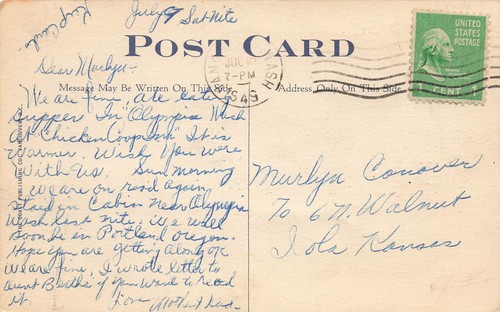 Keep Cards
July 9 Sat Nite
POST CARD
UNITED STATES
POSTAGE
1 CENT 1
JUL
7-PM
1949
WASH
Dear Murlyn:-
Message May Be Written On This Side
Address Only On This Side
We are fine, are eating
supper In Olympia Wash
At "Chicken Coop" It is
Warmer. Wish You Were
With Us. Sun morning
We are on road again,
staid in Cabin Near Olympia
Wash last nite. We will
soon be in Portland Oregon.
Hope You are getting along ok
We are fine, I wrote letter to
aunt Bertha if You Want to read
it. Love Mother & Dad.
Murlyn Conover
70 6 N. Walnut
Iola Kansas